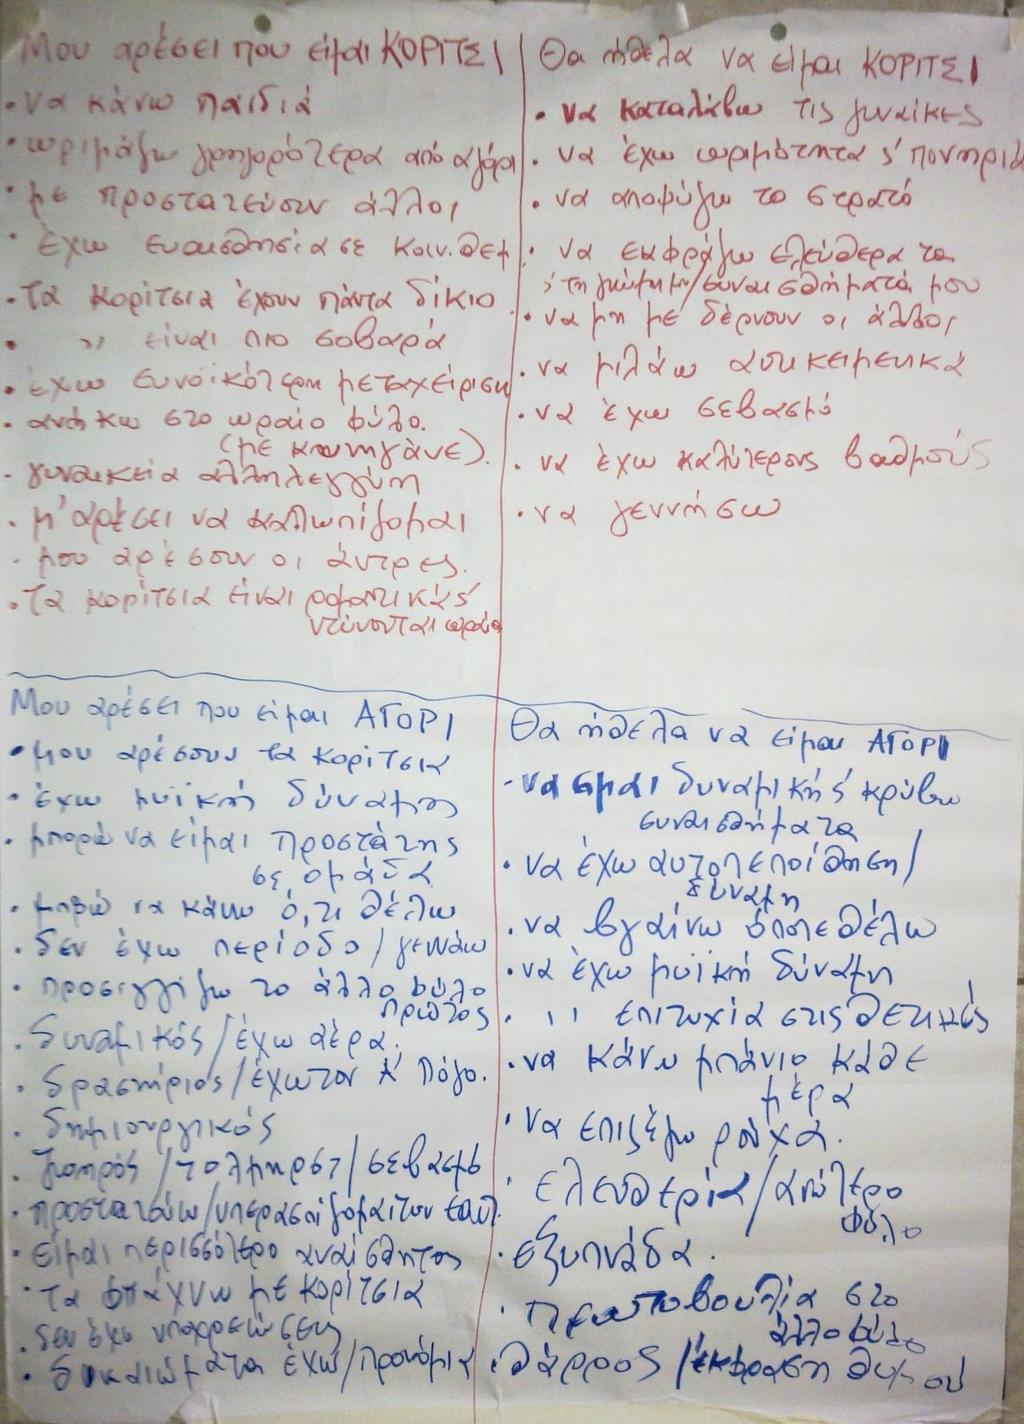 Μου αρέσει που είμαι ΚΟΡΙΤΣΙ
• να κάνω παιδιά
• ωριμάζω γρηγορότερα από αγόρι
• με προστατεύουν άλλοι
• έχω ευαισθησία σε κοιν. θεμ.
• Τα κορίτσια έχουν πάντα δίκιο
• " είναι πιο σοβαρά
• έχω ευνοϊκότερη μεταχείριση
• ανήκω στο ωραίο φύλο.
(με κυνηγάνε).
• γυναικεία αλληλεγγύη
• μ'αρέσει να καλωπίζομαι
• μου αρέσουν οι άντρες.
• Τα κορίτσια είναι ρομαντικά ς'
ντύνονται ωραία
Θα ήθελα να είμαι ΚΟΡΙΤΣΙ
• να καταλάβω τις γυναίκες
• να έχω ωριμότητα ς' πονηριά
• να αποφύγω το στρατό
• να εκφράζω ελεύθερα τα
ς' τη γνώμη μου/συναισθήματά μου
• να μη με δέρνουν οι άλλοι
• να μιλάω αντικειμενικά
• να έχω σεβασμό
• να έχω καλύτερους βαθμούς
• να γεννήσω
Μου αρέσει που είμαι ΑΓΟΡΙ
• μου αρέσουν τα κορίτσια
• έχω μυϊκή δύναμη
• μπορώ να είμαι προστάτης
σε ομάδα
• μπορώ να κάνω ό,τι θέλω
• δεν έχω περίοδο/γεννάω
• προσεγγίζω το άλλο φύλο
πρώτος
• δυναμικός/έχω αέρα.
• δραστήριος/έχω τον Α' λόγο.
• δημιουργικός
• ζωηρός/τολμηρός/σεβασμό
• προστατεύω/υπερασπίζομαι τον εαυτ.
• είμαι περισσότερο αναίσθητος
• τα φτιάχνω με κορίτσια
• δεν έχω υποχρεώσεις
• δικαιώματα έχω/προνόμια
Θα ήθελα να είμαι ΑΓΟΡΙ
- να είμαι δυναμική ς' κρύβω
συναισθήματα
• να έχω αυτοπεποίθηση/
δύναμη
• να βγαίνω όποτε θέλω
• να έχω μυϊκή δύναμη
• '' επιτυχία στις θετικές
• να κάνω μπάνιο κάθε
μέρα
• να επιλέγω ρούχα.
• ελευθερία/ανώτερο
φύλο
• εξυπνάδα.
• πρωτοβουλία στο
άλλο φύλο
• θάρρος/έκφραση θυμού